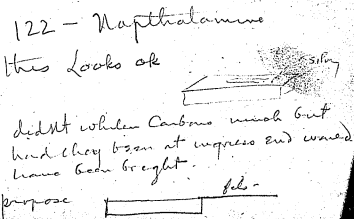 122 - Napthalamine
this Looks ok
didnt whiten Carbons much but
had they been at ingress End would
have been bright.
propose